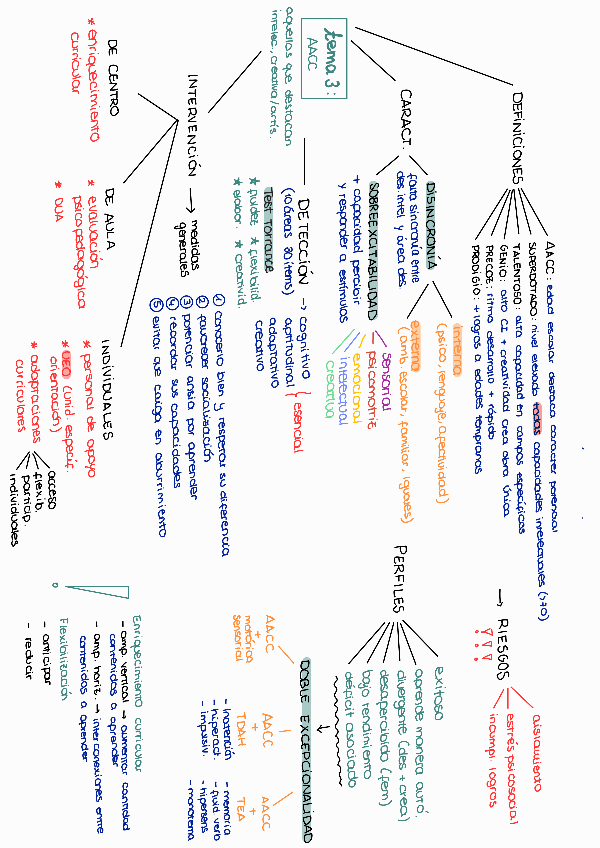 tema 3:
AACC
aquellas que destacan
intelec., creativa/artís.
DEFINICIONES
AACC: edad escolar destaca carácter potencial
SUPERDOTADO: nivel elevado todas capacidades intelectuales (>70)
TALENTOSO: alta capacidad en campos específicos
GENIO: alto CI + creatividad crea obra única
PRECOZ: ritmo desarrollo + rápido
PRODIGIO: + logros a edades tempranas
→ RIESGOS
! ! !
aislamiento
estrés psicosocial
incumpl. logros
CARACT.
DISINCRONÍA
falta sincronía entre
des. intel y área des.
interna
(psico, lenguaje, afectividad)
externa
(amb. escolar, familiar, iguales)
SOBREEXCITABILIDAD
+ capacidad percibir
y responder a estímulos
sensorial
psicomotriz
emocional
intelectual
creativa
PERFILES
exitoso
aprende manera autó.
divergente (des + crea)
desapercibido (fem)
bajo rendimiento
déficit asociado
DETECCIÓN → cognitivo
(10 áreas 30 ítems) aptitudinal { esencial
adaptativo
creativo
Test Torrance
* fluidez * flexibilid.
* elabor. * creativid.
DOBLE EXCEPCIONALIDAD
AACC
+
motórica
sensorial
AACC
+
TDAH
- Inatención
- hiperact.
- impulsiv.
AACC
+
TEA
- memoria
- fluid verb
- hipersens
- monotema
INTERVENCIÓN → medidas
generales
① Conocerlo bien y respetar su diferencia
② favorecer socialización
③ potenciar ansia por aprender
④ recordar sus capacidades
⑤ evitar que caiga en aburrimiento
DE CENTRO
* enriquecimiento
curricular
DE AULA
* evaluación
psicopedagógica
* DUA
INDIVIDUALES
* personal de apoyo
* UEO (unid. especíc.
orientación)
* adaptaciones
curriculares
acceso
flexib.
particip.
individuales
Enriquecimiento curricular
- amp. vertical → aumentar cantidad
contenidos a aprender
- amp. horiz. → interconexiones entre
contenidos a aprender
Flexibilización
- anticipar
- reducir